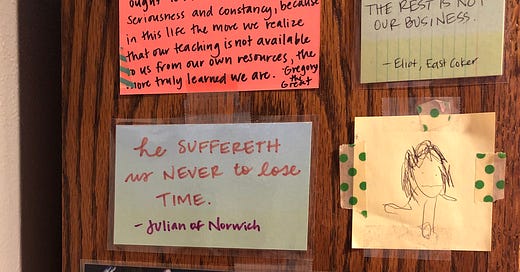 ought to
seriousness and constancy, because
in this life the more we realize
that our teaching is not available
to us from our own resources, the
more truly learned we are. -Gregory
the
Great
THE REST IS NOT
OUR BUSINESS.
- Eliot, East Coker
he SUFFERETH
us NEVER to lose
TIME.
- Julian of Norwich